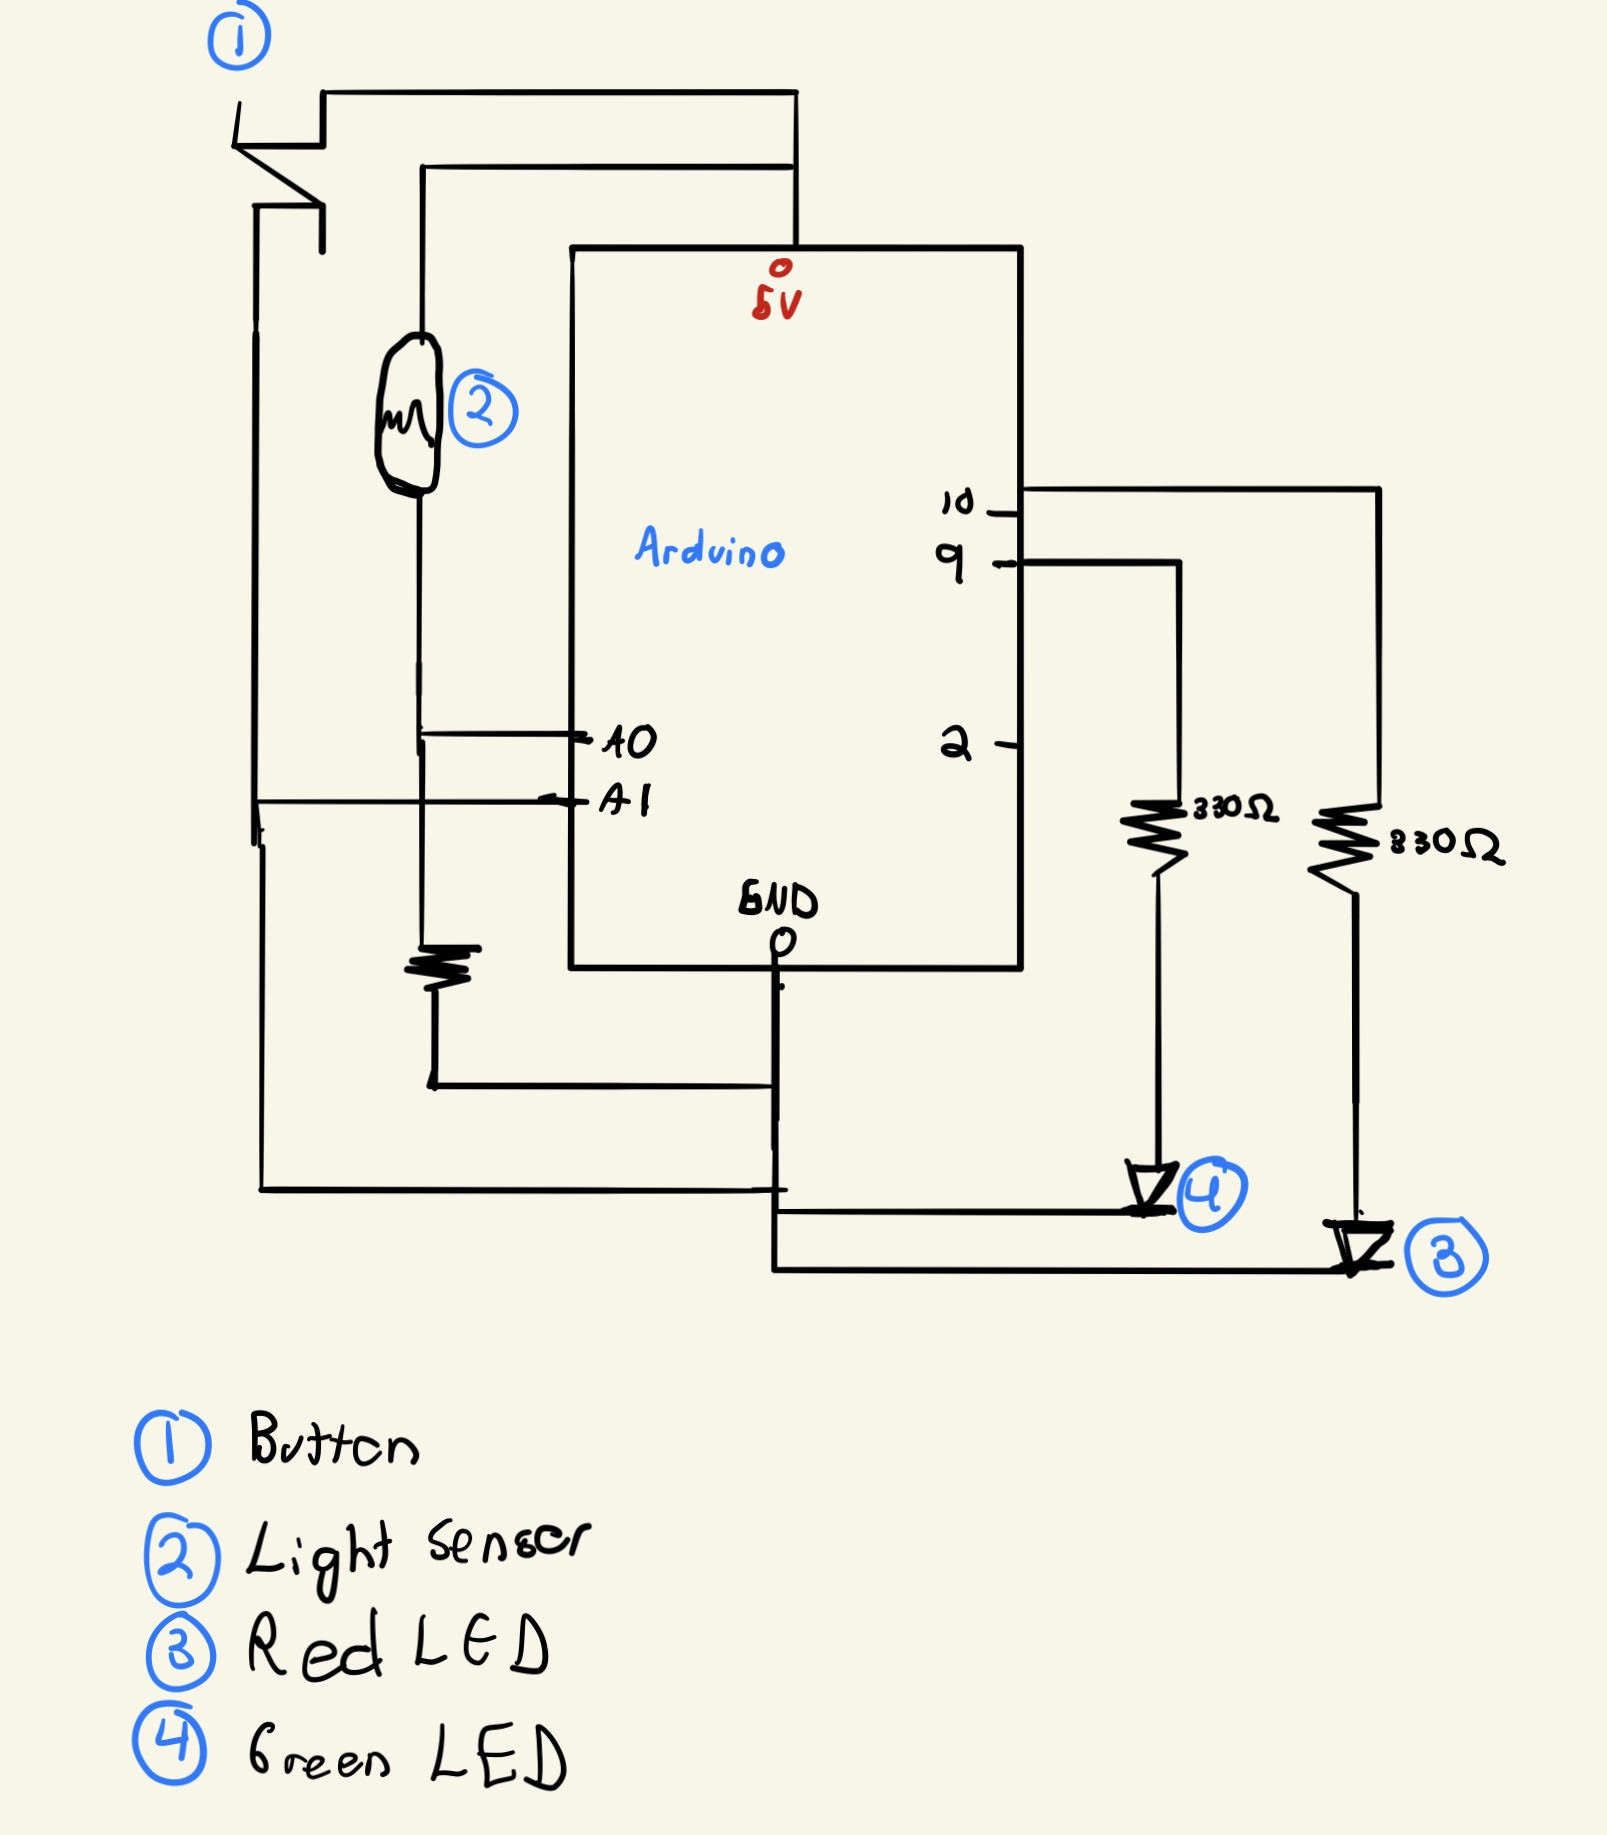 1
5V
2
10
Arduino
9
A0
2
A1
330Ω
330Ω
GND
4
3
1 Button
2 Light sensor
3 Red LED
4 Green LED